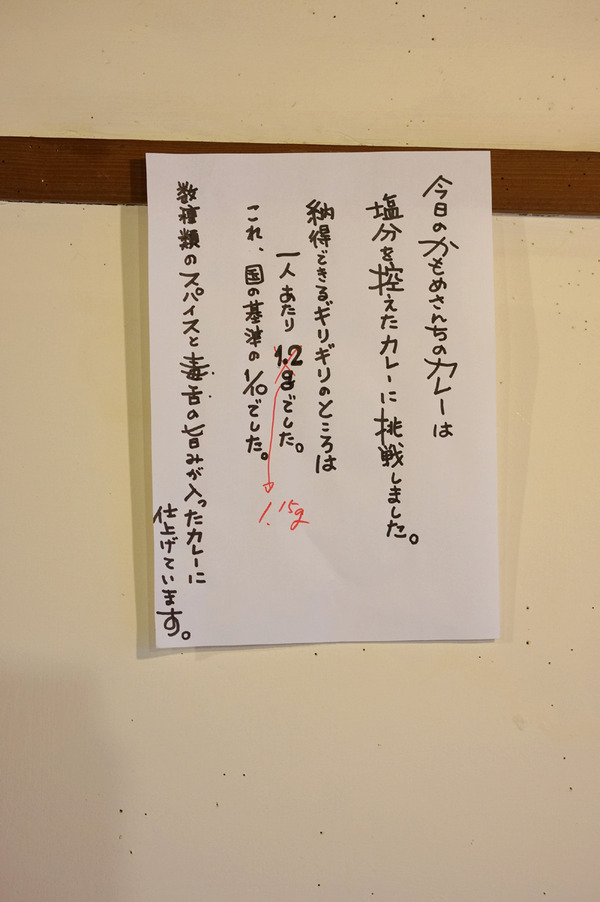 今日のかもめさんちのカレーは
塩分を控えたカレーに挑戦しました。
納得できるギリギリのところは
一人あたり1.2gでした。
1.15g
これ、国の基準の1/10でした。
数種類のスパイスと毒舌の旨みが入ったカレーに
仕上げています。